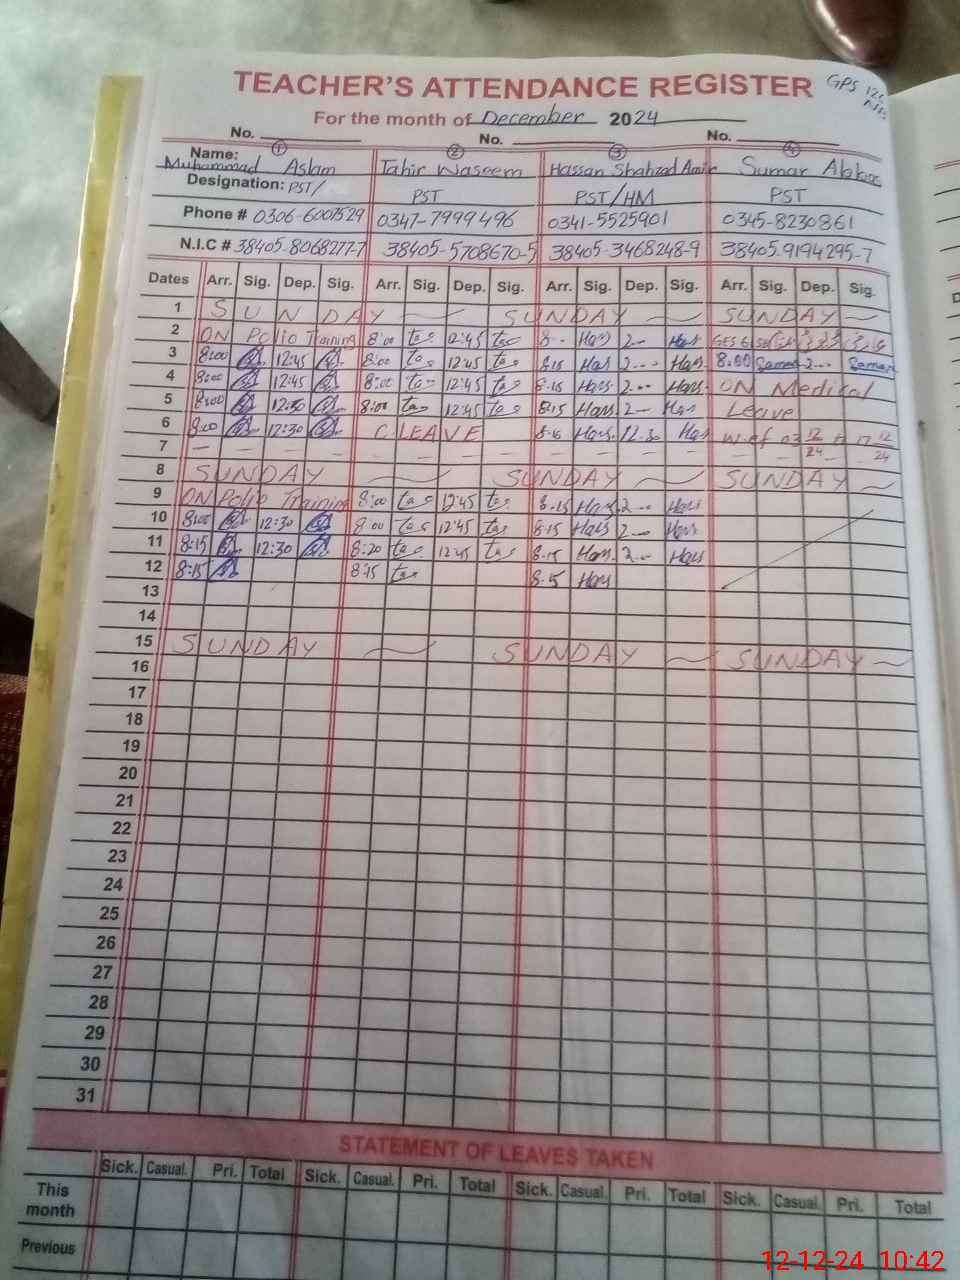 TEACHER'S ATTENDANCE REGISTER
GPS
For the month of December 2024
No. No. No.
① ② ③ ④
Name: Muhammad Aslam Tahir Waseem Hassan Shahzad Amir Sumar Abbas
Designation: PST/ PST PST/HM PST
Phone # 0306-6007529 0347-7999496 0341-5525901 0345-8230861
N.I.C # 38405-8068277-7 38405-5708670-5 38405-3468248-9 38405-9194295-7
Dates Arr. Sig. Dep. Sig. Arr. Sig. Dep. Sig. Arr. Sig. Dep. Sig. Arr. Sig. Dep. Sig.
1 SUNDAY SUNDAY SUNDAY
2 ON Polio Training 8:00 tas 12:45 tas 8-- Has 2-- Has
3 8:00 12:45 8:00 tas 12:45 tas 8.15 Has 2-- Has 8:00 Samar 2-- Samar
4 8:00 12:45 8:00 tas 12:45 tas 8.15 Has 2-- Has ON Medical
5 8:00 12:30 8:00 tas 12:45 tas 8.15 Has 2-- Has Leave
6 8:00 12:30 C. LEAVE 8.15 Has 12.30 Has w.ef 03 12/24 17 12/24
7 – – – – – – – – – – – – – – – –
8 SUNDAY SUNDAY SUNDAY
9 ON Polio Training 8:00 tas 12:45 tas 8.15 Has 2-- Has
10 8:00 12:30 8:00 tas 12:45 tas 8.15 Has 2-- Has
11 8:15 12:30 8:20 tas 12:45 tas 8.15 Has 2-- Has
12 8:15 8:15 tas 8.15 Has
13
14
15 SUNDAY SUNDAY SUNDAY
16
17
18
19
20
21
22
23
24
25
26
27
28
29
30
31
STATEMENT OF LEAVES TAKEN
Sick. Casual. Pri. Total Sick. Casual. Pri. Total Sick. Casual. Pri. Total Sick. Casual. Pri. Total
This
month
Previous
12-12-24 10:42